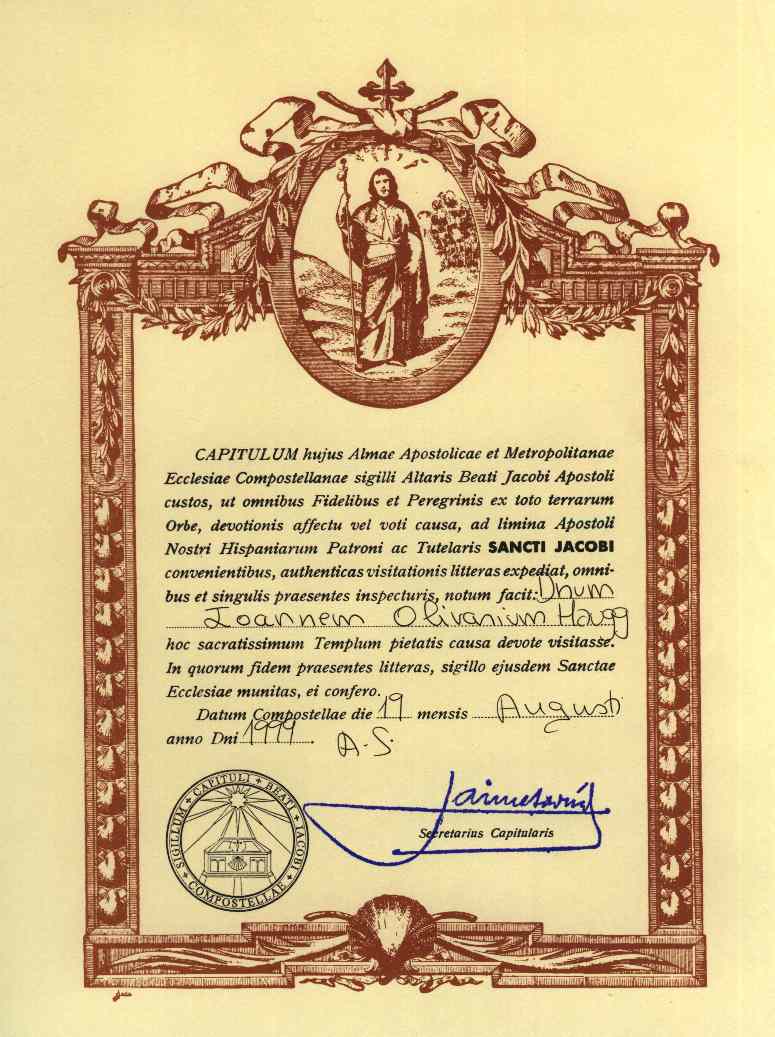 CAPITULUM hujus Almae Apostolicae et Metropolitanae
Ecclesiae Compostellanae sigilli Altaris Beati Jacobi Apostoli
custos, ut omnibus Fidelibus et Peregrinis ex toto terrarum
Orbe, devotionis affectu vel voti causa, ad limina Apostoli
Nostri Hispaniarum Patroni ac Tutelaris SANCTI JACOBI
convenientibus, authenticas visitationis litteras expediat, omni-
bus et singulis praesentes inspecturis, notum facit: Dnum
Ioannem Olivarium Haugg
hoc sacratissimum Templum pietatis causa devote visitasse.
In quorum fidem praesentes litteras, sigillo ejusdem Sanctae
Ecclesiae munitas, ei confero.
Datum Compostellae die 19 mensis Augusti
anno Dni 1999. A.S.
SIGILLUM + CAPITULI + BEATI + IACOBI + COMPOSTELLAE +
Secretarius Capitularis